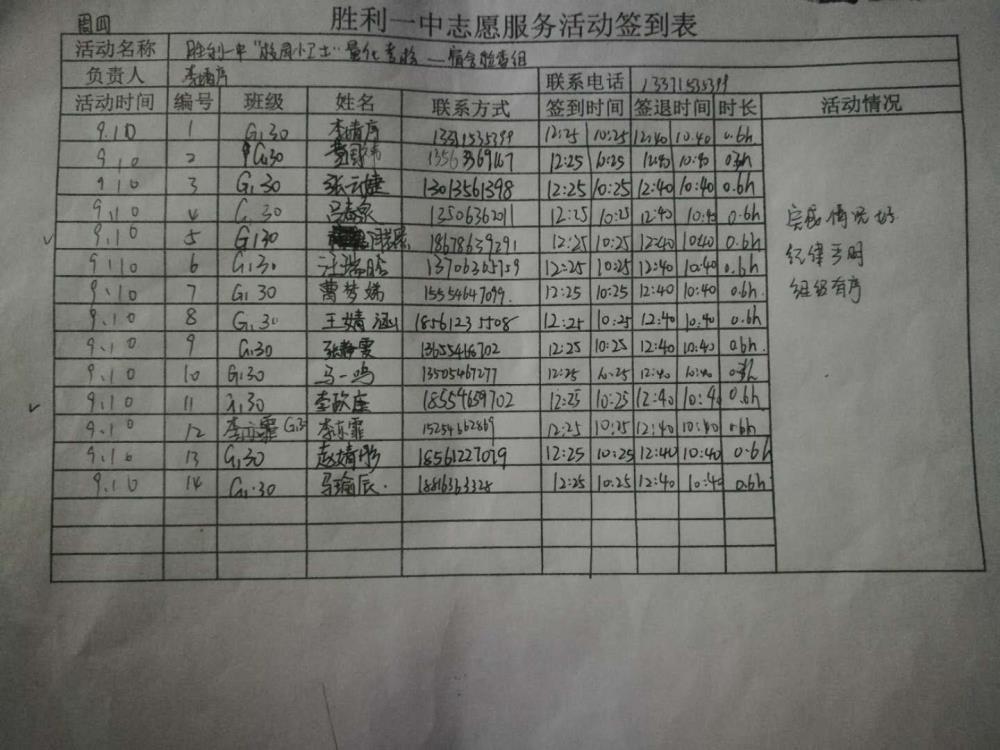 周四
胜利一中志愿服务活动签到表
活动名称 胜利一中"校园小卫士"量化考核—宿舍检查组
负责人 李靖序 联系电话 13371535399
活动时间 编号 班级 姓名 联系方式 签到时间 签退时间 时长 活动情况
9.10 1 G130 李靖序 12:25 10:25 12:40 10:40 0.6h
9.10 2 G130 12:25 10:25 12:40 10:40
9.10 3 G130 张云婕 13013561398 12:25 10:25 12:40 10:40 0.6h
9.10 4 G130 13506362011 12:25 10:25 12:40 10:40 0.6h
✓ 9.10 5 G130 18678639291 12:25 10:25 12:40 10:40 0.6h
9.10 6 G130 13706365759 12:25 10:25 12:40 10:40 0.6h
9.10 7 G130 曹梦娣 15554647099 12:25 10:25 12:40 10:40 0.6h
9.10 8 G130 王婧涵 18561235508 12:25 10:25 12:40 10:40 0.6h
9.10 9 G130 张静雯 13655466702 12:25 10:25 12:40 10:40 0.6h
9.10 10 G130 马一鸣 13505467277 12:25 10:25 12:40 10:40
✓ 9.10 11 G130 18554659702 12:25 10:25 12:40 10:40 0.6h
9.10 12 李亦霏 G130 李亦霏 15254662869 12:25 10:25 12:40 10:40 0.6h
9.10 13 G130 赵婧彤 18561227079 12:25 10:25 12:40 10:40 0.6h
9.10 14 G130 马瑜辰 18816363328 12:25 10:25 12:40 10:40 0.6h
完成情况好
纪律严明
组织有序